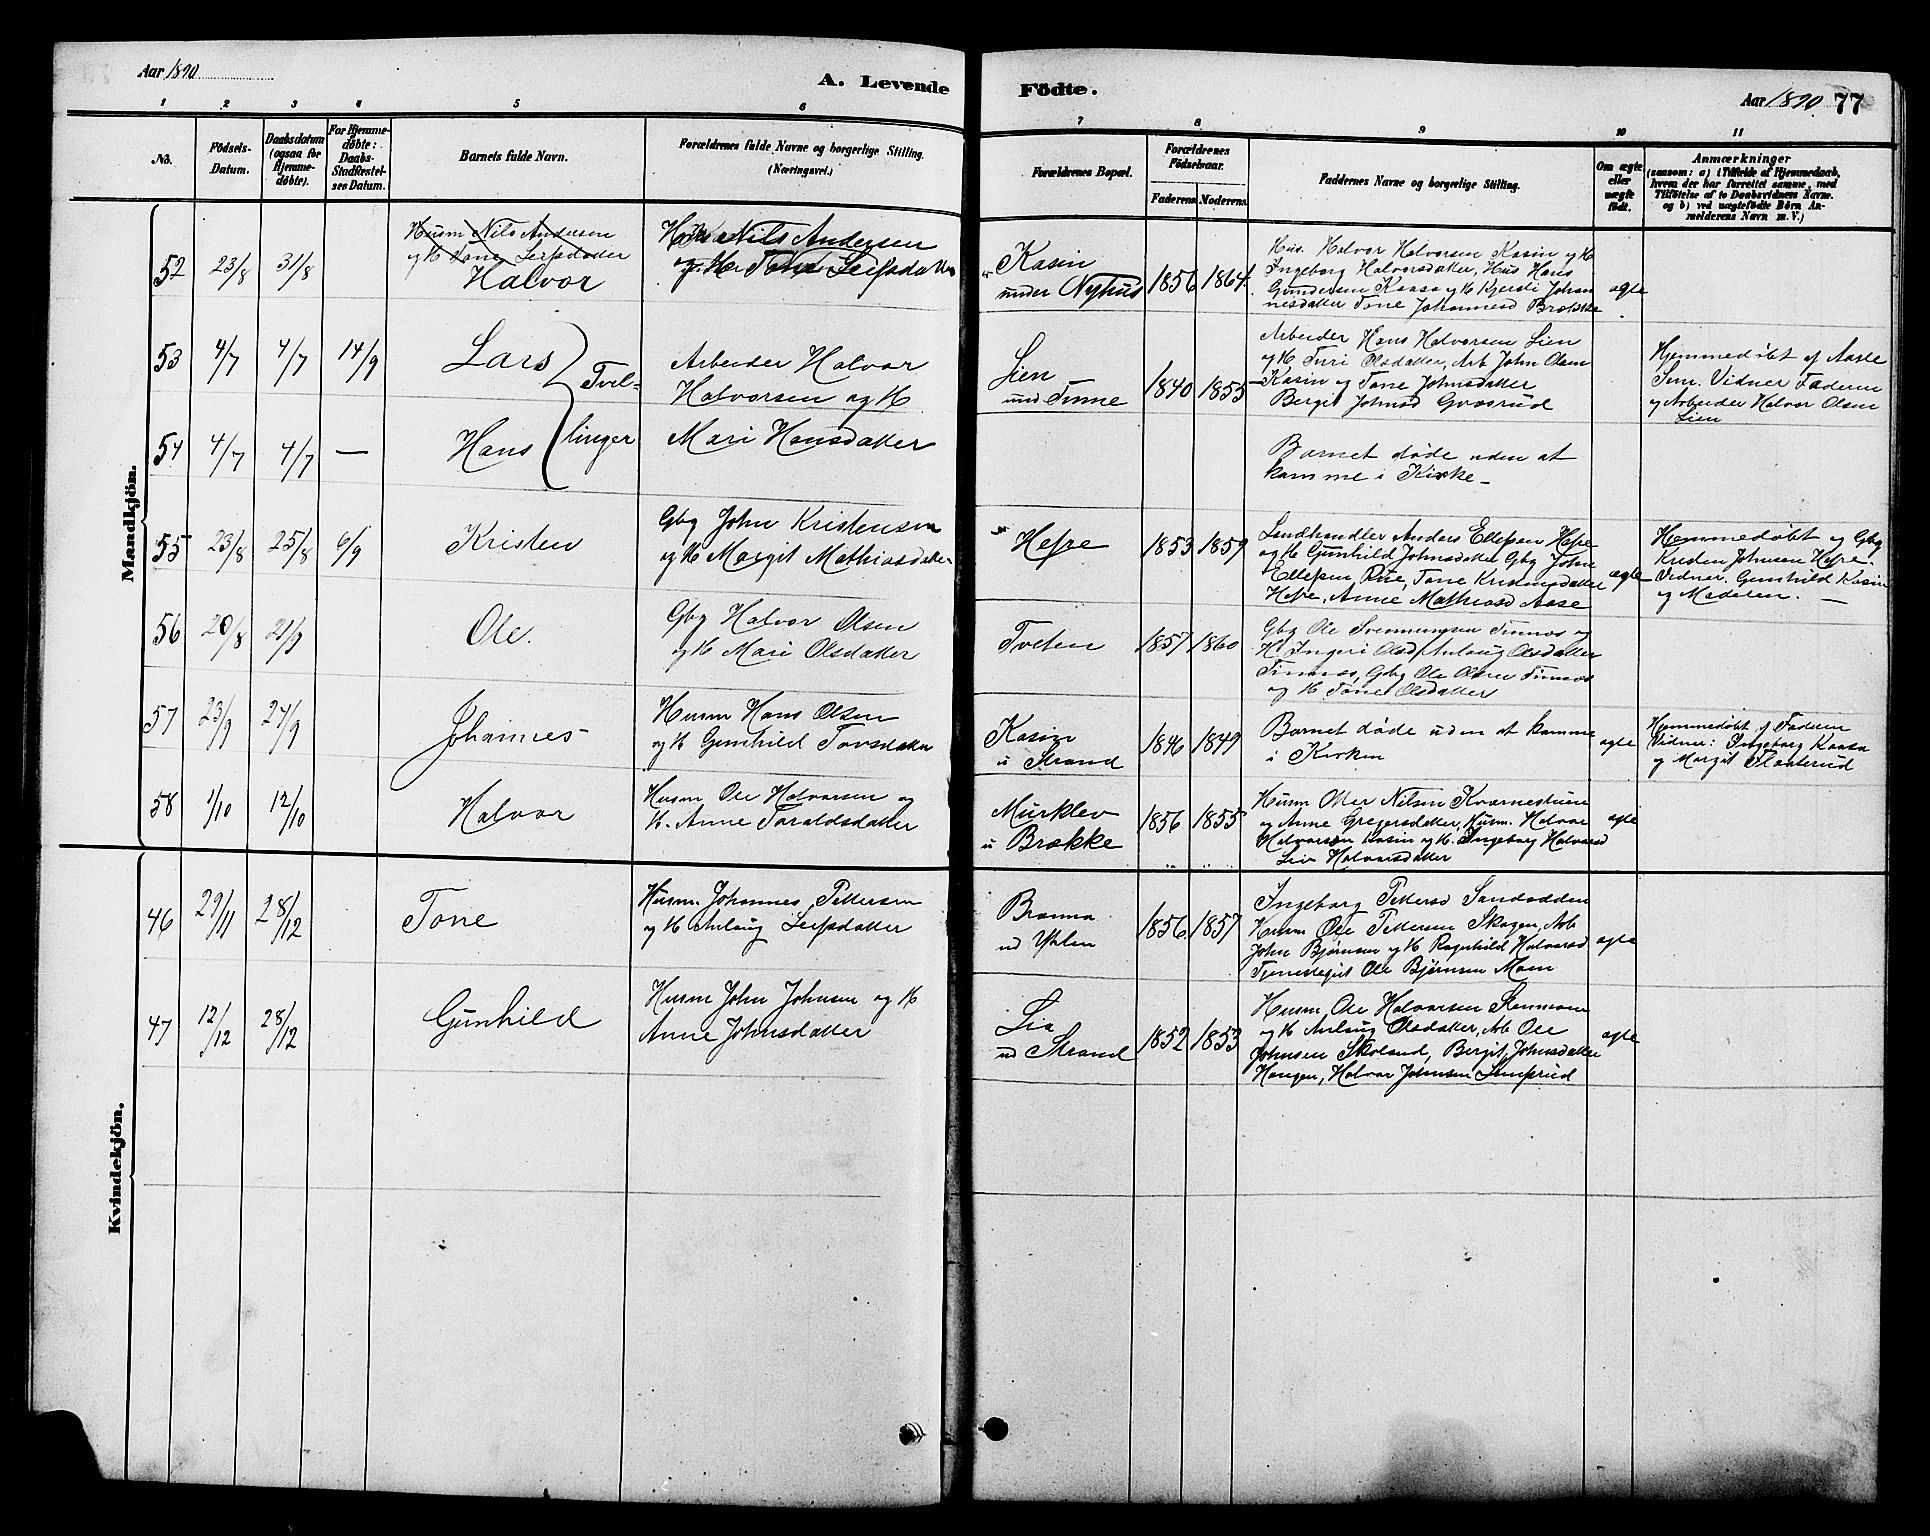 Aar 1890
A. Levende Födte.
Aar 1890. 77
1 2 3 4 5 6 7 8 9 10 11
No.
Födsels-
Datum.
Daabsdatum
(ogsaa for
Hjemme-
døbte).
For Hjemme-
døbte:
Daabs-
Stadfæstel-
ses Datum.
Barnets fulde Navn.
Forældrenes fulde Navne og borgerlige Stilling.
(Næringsvei.)
Forældrenes Bopæl.
Forældrenes
Födselsaar.
Faderens. Moderens.
Faddernes Navne og borgerlige Stilling.
Om ægte
eller
uægte
født.
Anmærkninger
(saasom: a) i Tilfælde af Hjemmedaab,
hvem der har forrettet samme, med
Tilføielse af to Daabsvidners Navne.
og b) ved uægtefødte Börn An-
melderens Navn m. V.)
Mandkjön.
52 23/8 31/8
Husm Nils Andersen
og H Tone Leifsdatter
Halvor
Nils Andersen
og H. Tone Leifsdatter
Kasin
under Nyhus
1856 1864
Hus. Halvor Halvorsen Kasin og H
Ingeborg Halvorsdatter, Hus Hans
Gundersen Kaasa og H Kjersti Johan
nesdatter Tone Johannesd Brække
ægte
53 4/7 4/7 14/9
Lars
Tvil-
Arbeider Halvor
Halvorsen og H
Lien
und Tinne
1840 1855
Arbeider Hans Halvorsen Lien
og H Turi Olsdatter, Arb John Olsen
Kasin og Tone Johnsdatter
Bergit Johnsd Gvasrud
Hjemmedøbt af Aasle
Sem. Vidner Faderen
og Arbeider Halvor Olsen
Lien
54 4/7 4/7 —
Hans
linger
Mari Hansdatter
Barnet døde uden at
komme i Kirke —
55 23/8 25/8 6/9
Kristen
Gbg John Kristensen
og H Margit Mathiasdatter
Hefre
1853 1859
Landhandler Anders Ellefsen Hefre
og H Gunhild Johnsdatter Gbg John
Ellefsen Rue, Tone Kristensdatter
Hefre, Anne Mathiasd Aase
ægte
Hjemmedøbt og Gbg
Kristen Johnsen Hefre.
Vidner. Gunhild Kasin
og Moderen. —
56 20/8 21/9
Ole.
Gbg Halvor Olsen
og H Mari Olsdatter
Tveten
1857 1860
Gbg Ole Svennungsen Tinnes og
H Ingeri Olsd, Anlaug Olsdatter
Tinnes, Gbg Ole Olsen Tinnes
og H Tone Olsdatter
57 23/9 24/9
Johannes
Husm Hans Olsen
og H Gunhild Tovsdatter
Kasin
u Strand
1846 1849
Barnet døde uden at komme
i Kirken
ægte
Hjemmedøbt af Faderen
Vidner: Ingeborg Kaasa
og Margit Flaaterud
58 1/10 12/10
Halvor
Husm Ole Halvorsen og
H. Anne Taraldsdatter
Murklev
u Brække
1856 1855
Husm Otter Nilsen Kvernestuen
og Anne Gregersdatter, Husm. Halvor
Halvorsen Kasin og H. Ingeborg Halvorsd
Lien Halvorsdatter
ægte
Kvindekjön.
46 29/11 28/12
Tone
Husm. Johannes Pettersen
og H Anlaug Leifsdatter
ud
1856 1857
Ingeborg Pettersd Sandodden
Husm Ole Pettersen Skogen, Arb
John Bjørnsen og H Ragnhild Halvorsd
Tjenestegut Ole Bjørnsen Moen
ægte
47 12/12 28/12
Gunhild
Husm John Johnsen og H
Anne Johnsdatter
Lia
ud Strand
1852 1853
Husm, Ole Halvorsen
og H Anlaug Olsdatter, Arb Ole
Johnsen Skoland, Bergit Johnsdatter
Haugen, Halvor Johnsen
ægte